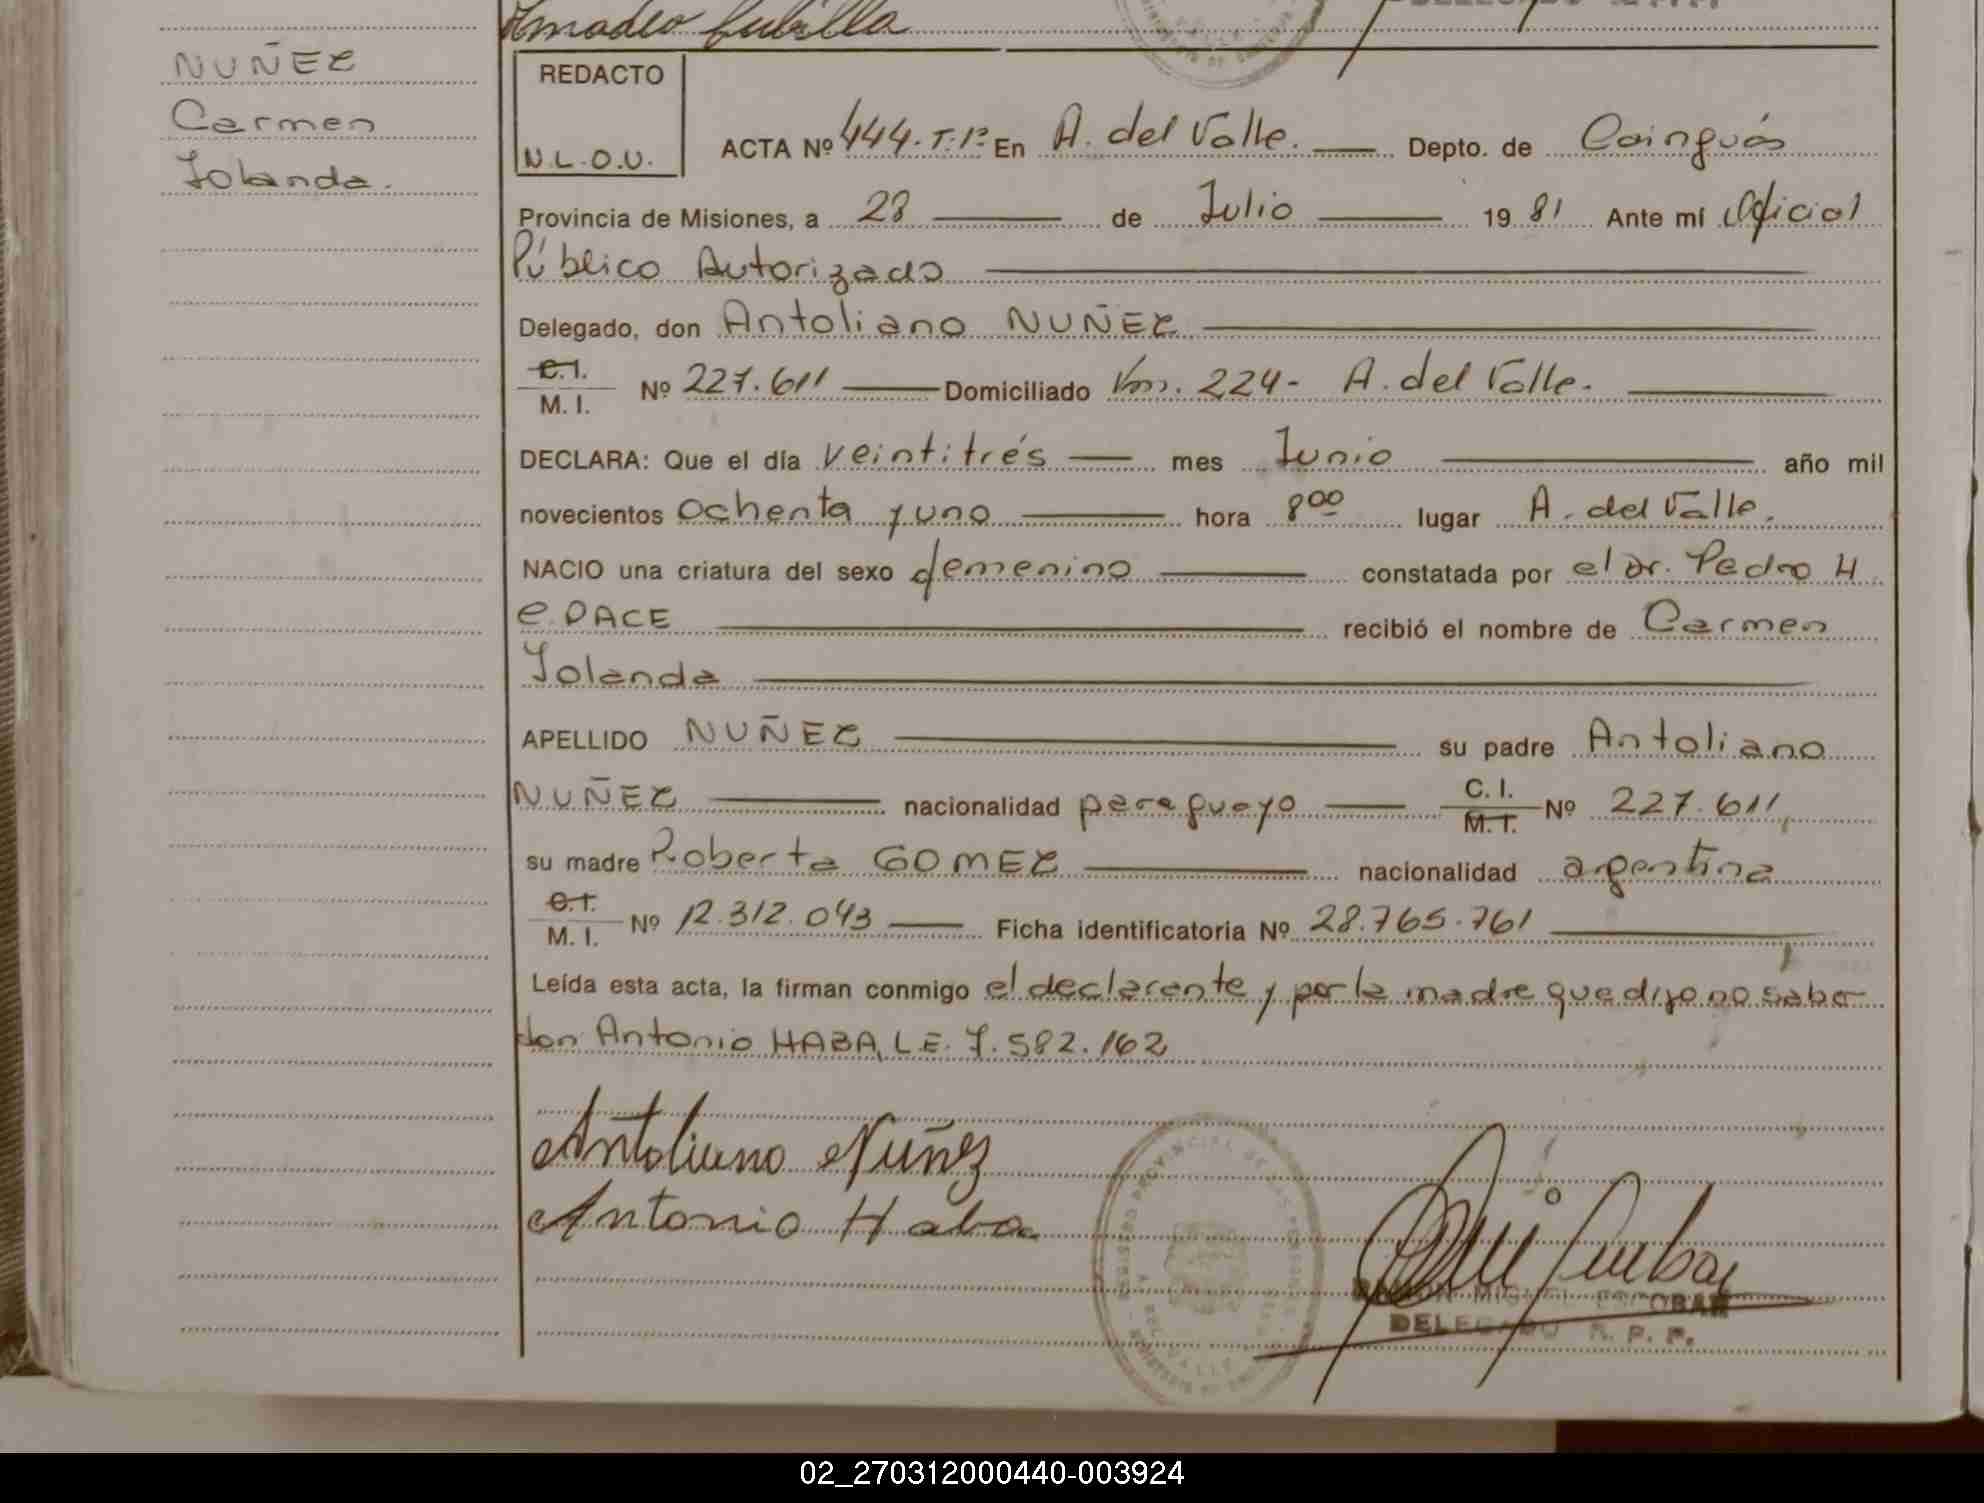 Amadeo Cubilla
NUÑEZ
Carmen
Iolanda.
REDACTO
N.L.O.U.
ACTA Nº 444.T:1º En A. del Valle. Depto. de Cainguás
Provincia de Misiones, a 28 de Julio 19 81 Ante mí Oficial
Público Autorizado
Delegado, don Antoliano NUÑEZ
C.I.
M. I. Nº 227.611 Domiciliado Km. 224- A. del Valle.
DECLARA: Que el día veintitrés mes Junio año mil
novecientos ochenta y uno hora 8ºº lugar A. del Valle.
NACIO una criatura del sexo femenino constatada por el Dr. Pedro H
e. PACE recibió el nombre de Carmen
Iolanda
APELLIDO NUÑEZ su padre Antoliano
NUÑEZ nacionalidad paraguayo C. I.
M. I. Nº 227.611
su madre Roberta GOMEZ nacionalidad argentina
C.I.
M. I. Nº 12.312.043 Ficha identificatoria Nº 28.765.761
Leída esta acta, la firman conmigo el declarante y por la madre que dijo no saber
don Antonio HABA, L.E. 7.582.162
Antoliano Nuñez
Antonio Haba
RAMON MIGUEL ESCOBAR
DELEGADO R. P. P.
02_270312000440-003924